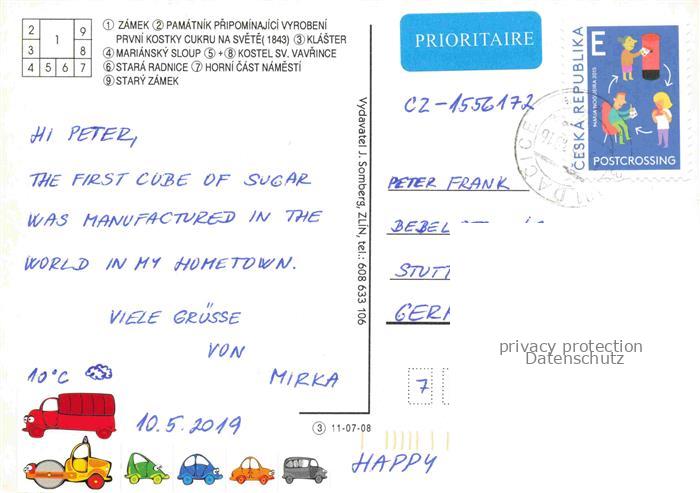 2 1 9
3 8
4 5 6 7
① ZÁMEK ② PAMÁTNÍK PŘIPOMÍNAJÍCÍ VYROBENÍ
PRVNÍ KOSTKY CUKRU NA SVĚTĚ( 1843) ③ KLÁŠTER
④ MARIÁNSKÝ SLOUP ⑤+⑧ KOSTEL SV. VAVŘINCE
⑥ STARÁ RADNICE ⑦ HORNÍ ČÁST NÁMĚSTÍ
⑨ STARÝ ZÁMEK
HI PETER,
THE FIRST CUBE OF SUGAR
WAS MANUFACTURED IN THE
WORLD IN MY HOMETOWN.
VIELE GRÜSSE
VON
MIRKA
10°C
10.5.2019
Vydavatel J. Somberg, ZLÍN, tel.: 608 633 106
③ 11-07-08
PRIORITAIRE
E
ČESKÁ REPUBLIKA
MARIA NOGUEIRA 2015
POSTCROSSING
DAČICE
CZ-1556172
PETER FRANK
BEBEL
STUTT
GER
privacy protection
Datenschutz
7
HAPPY